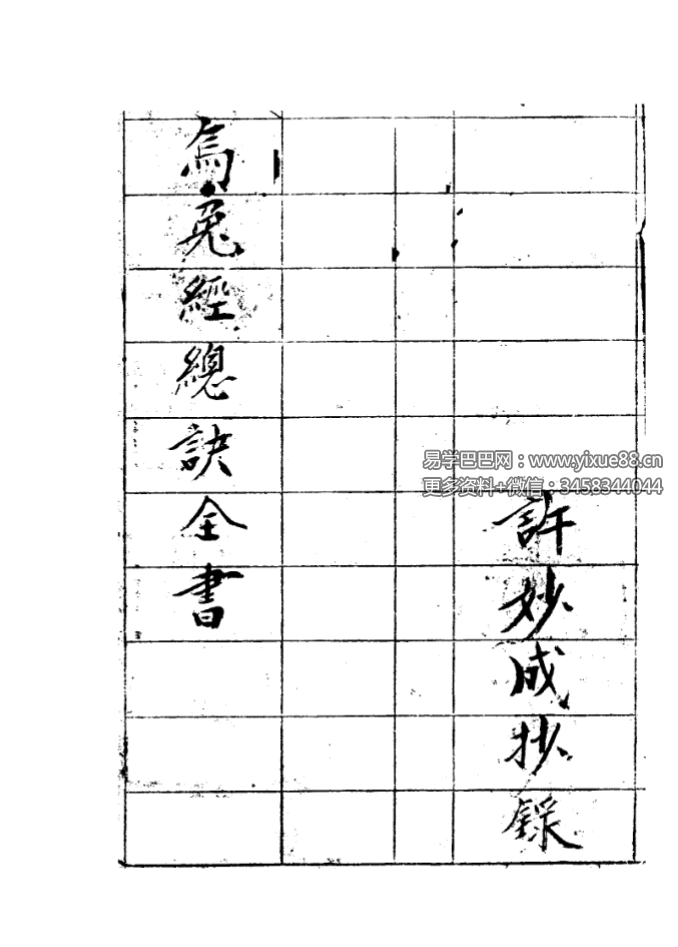 許妙成抄錄
烏兔經總訣全書
易学巴巴网：www.yixue88.cn
更多资料+微信：3458344044